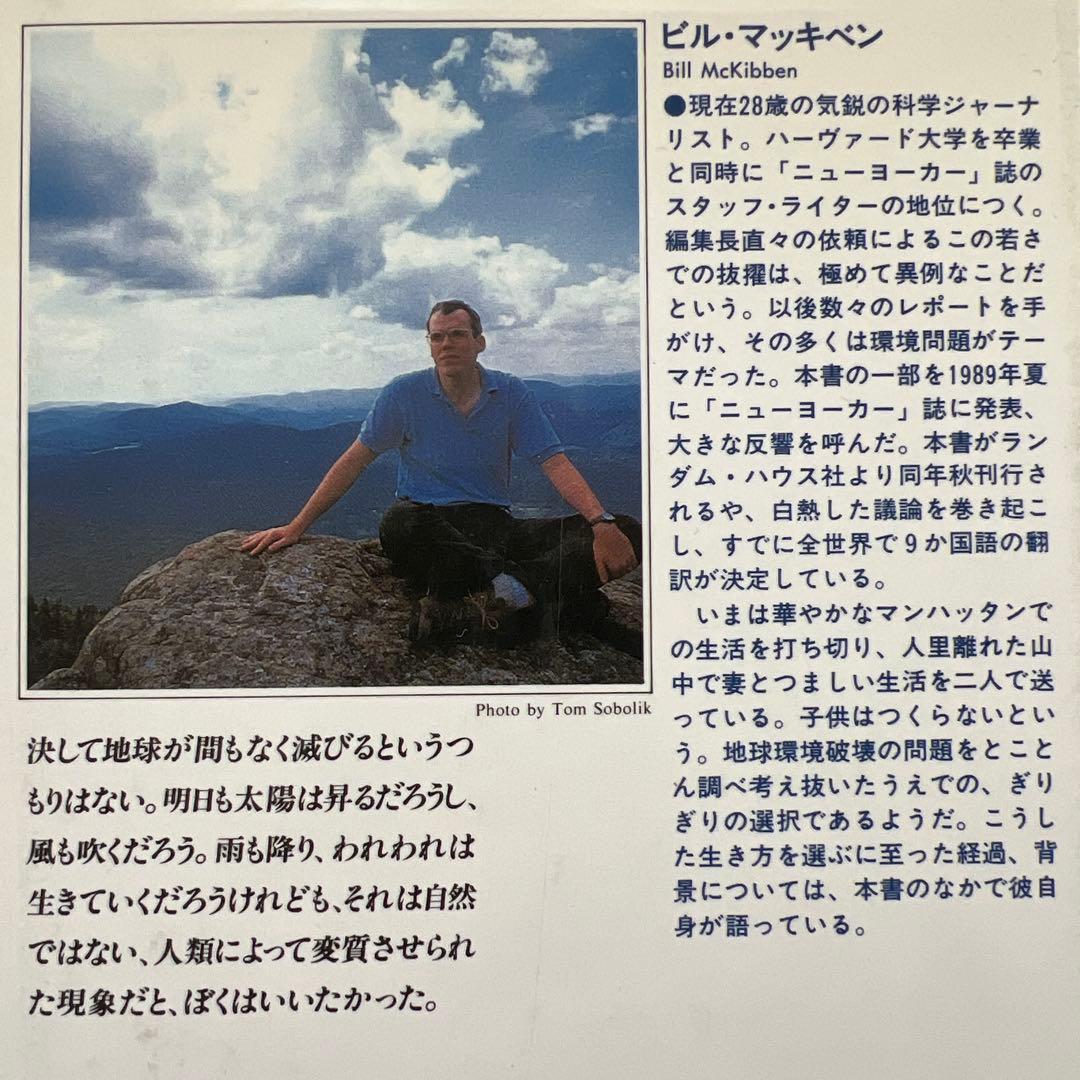 ビル・マッキベン
Bill McKibben
●現在28歳の気鋭の科学ジャーナ
リスト。ハーヴァード大学を卒業
と同時に「ニューヨーカー」誌の
スタッフ・ライターの地位につく。
編集長直々の依頼によるこの若さ
での抜擢は、極めて異例なことだ
という。以後数々のレポートを手
がけ、その多くは環境問題がテー
マだった。本書の一部を1989年夏
に「ニューヨーカー」誌に発表、
大きな反響を呼んだ。本書がラン
ダム・ハウス社より同年秋刊行さ
れるや、白熱した議論を巻き起こ
し、すでに全世界で9か国語の翻
訳が決定している。
いまは華やかなマンハッタンで
の生活を打ち切り、人里離れた山
中で妻とつましい生活を二人で送
っている。子供はつくらないとい
う。地球環境破壊の問題をとこと
ん調べ考え抜いたうえでの、ぎり
ぎりの選択であるようだ。こうし
た生き方を選ぶに至った経過、背
景については、本書のなかで彼自
身が語っている。
Photo by Tom Sobolik
決して地球が間もなく滅びるというつ
もりはない。明日も太陽は昇るだろうし、
風も吹くだろう。雨も降り、われわれは
生きていくだろうけれども、それは自然
ではない、人類によって変質させられ
た現象だと、ぼくはいいたかった。